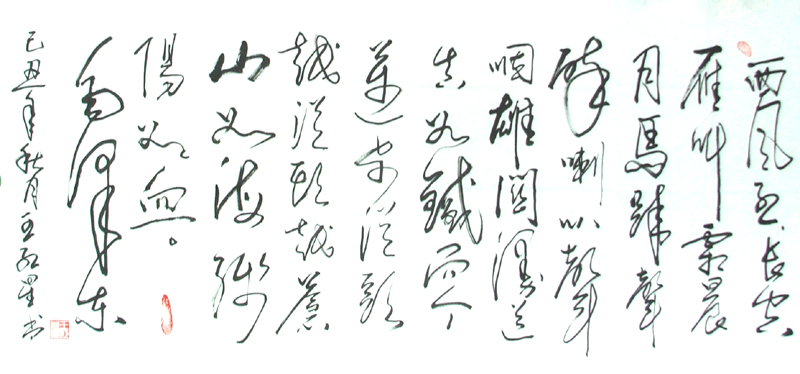 西风烈长空
雁叫霜晨
月馬蹄聲
碎喇叭聲
咽雄關漫道
真如鐵而今
邁步從頭
越從頭越蒼
山如海殘
陽如血。
毛澤东
己丑年秋月王星书